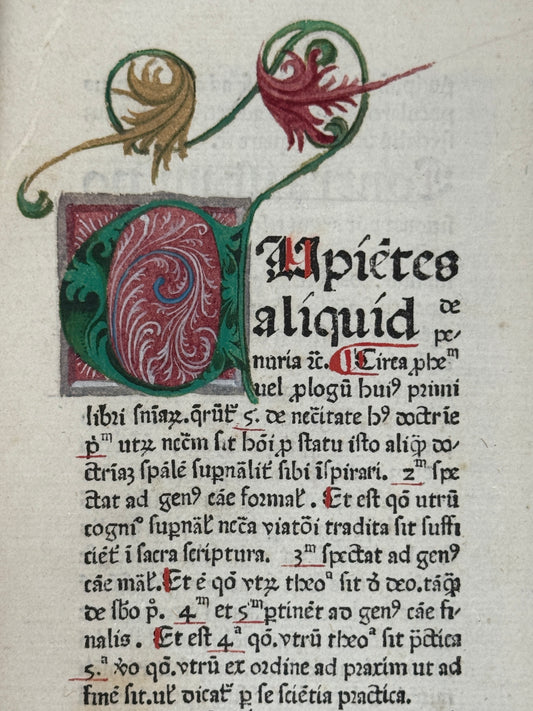 CUpiẽtes
aliquid de
pe-
nuria ⁊c̃. ¶ Circa ꝓheᵐ
uel ꝓlogũ huiꝰ primi
libri sniaꝝ. q̃runt᷑ 5. de necc̃itate hꝰ doctrĩe
p̊ᵐ utꝝ necc̃m sit hõi ꝓ statu isto aliq̃ do-
ctrĩaz spãlẽ supr̃nãlit᷑ sibi ĩspirari. 2ᵐ spe
ctat ad genꝰ cãe formal᷑. Et est qõ utrũ
cognõ supr̃naĺ necc̃a viatõi tradita sit suffi
ciẽt᷑ ĩ sacra scriptura. 3ᵐ spectat ad genꝰ
cãe mãĺ. Et ẽ qõ vtꝝ theoᵃ sit đ deo. tãq̃ꝫ
de sƀo pº. 4ᵐ et 5ᵐ ꝑtinẽt ad genꝰ cãe fi-
nalis. Et est 4ᵃ qõ. vtrũ theoᵃ sit p̃ctica
5.ᵃ v̊o qõ. vtrũ ex ordine ad praxim ut ad
finẽ sit. uĺ dicat᷑ ꝑ se sciẽtia practica.